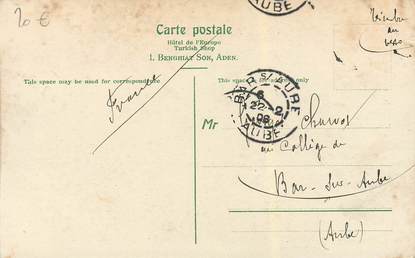 20 €
AUBE
Timbre
au
verso
Carte postale
Hôtel de l'Europe
Turkish Shop
I. BENGHIAT SON, ADEN.
This space may be used for correspondence
This space
only
France
BAR S/ AUBE
22-2
08
AUBE
Mr
au Collège de
Bar-Sur-Aube
(Aube)